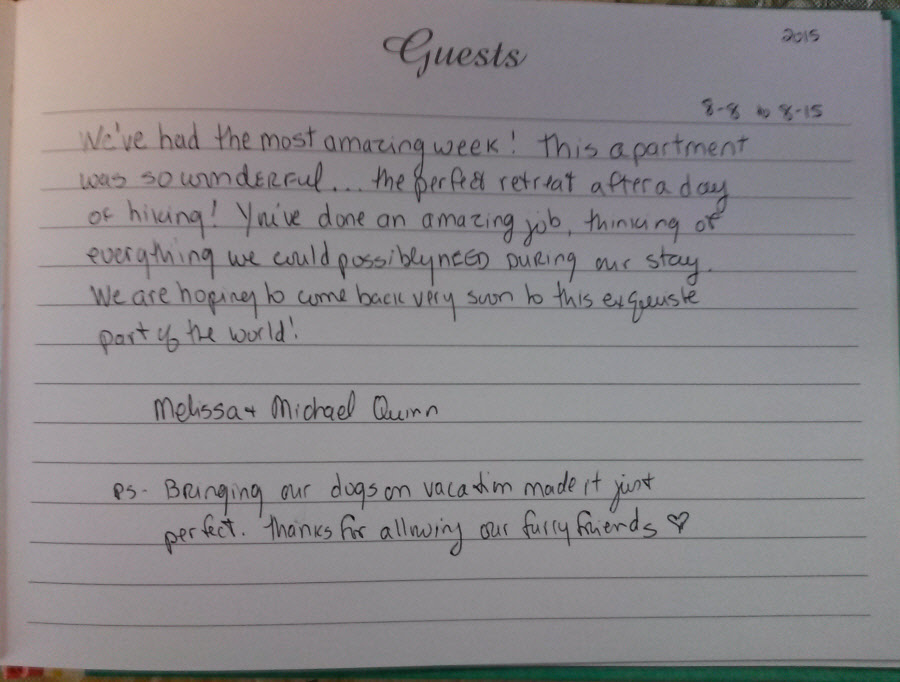 Guests
2015
8-8 to 8-15
We've had the most amazing week! This apartment
was so wonderful... the perfect retreat after a day
of hiking! You've done an amazing job, thinking of
everything we could possibly need during our stay.
We are hoping to come back very soon to this exqueiste
part of the world!
Melissa + Michael Quinn
PS - Bringing our dogs on vacation made it just
perfect. Thanks for allowing our furry friends ♡